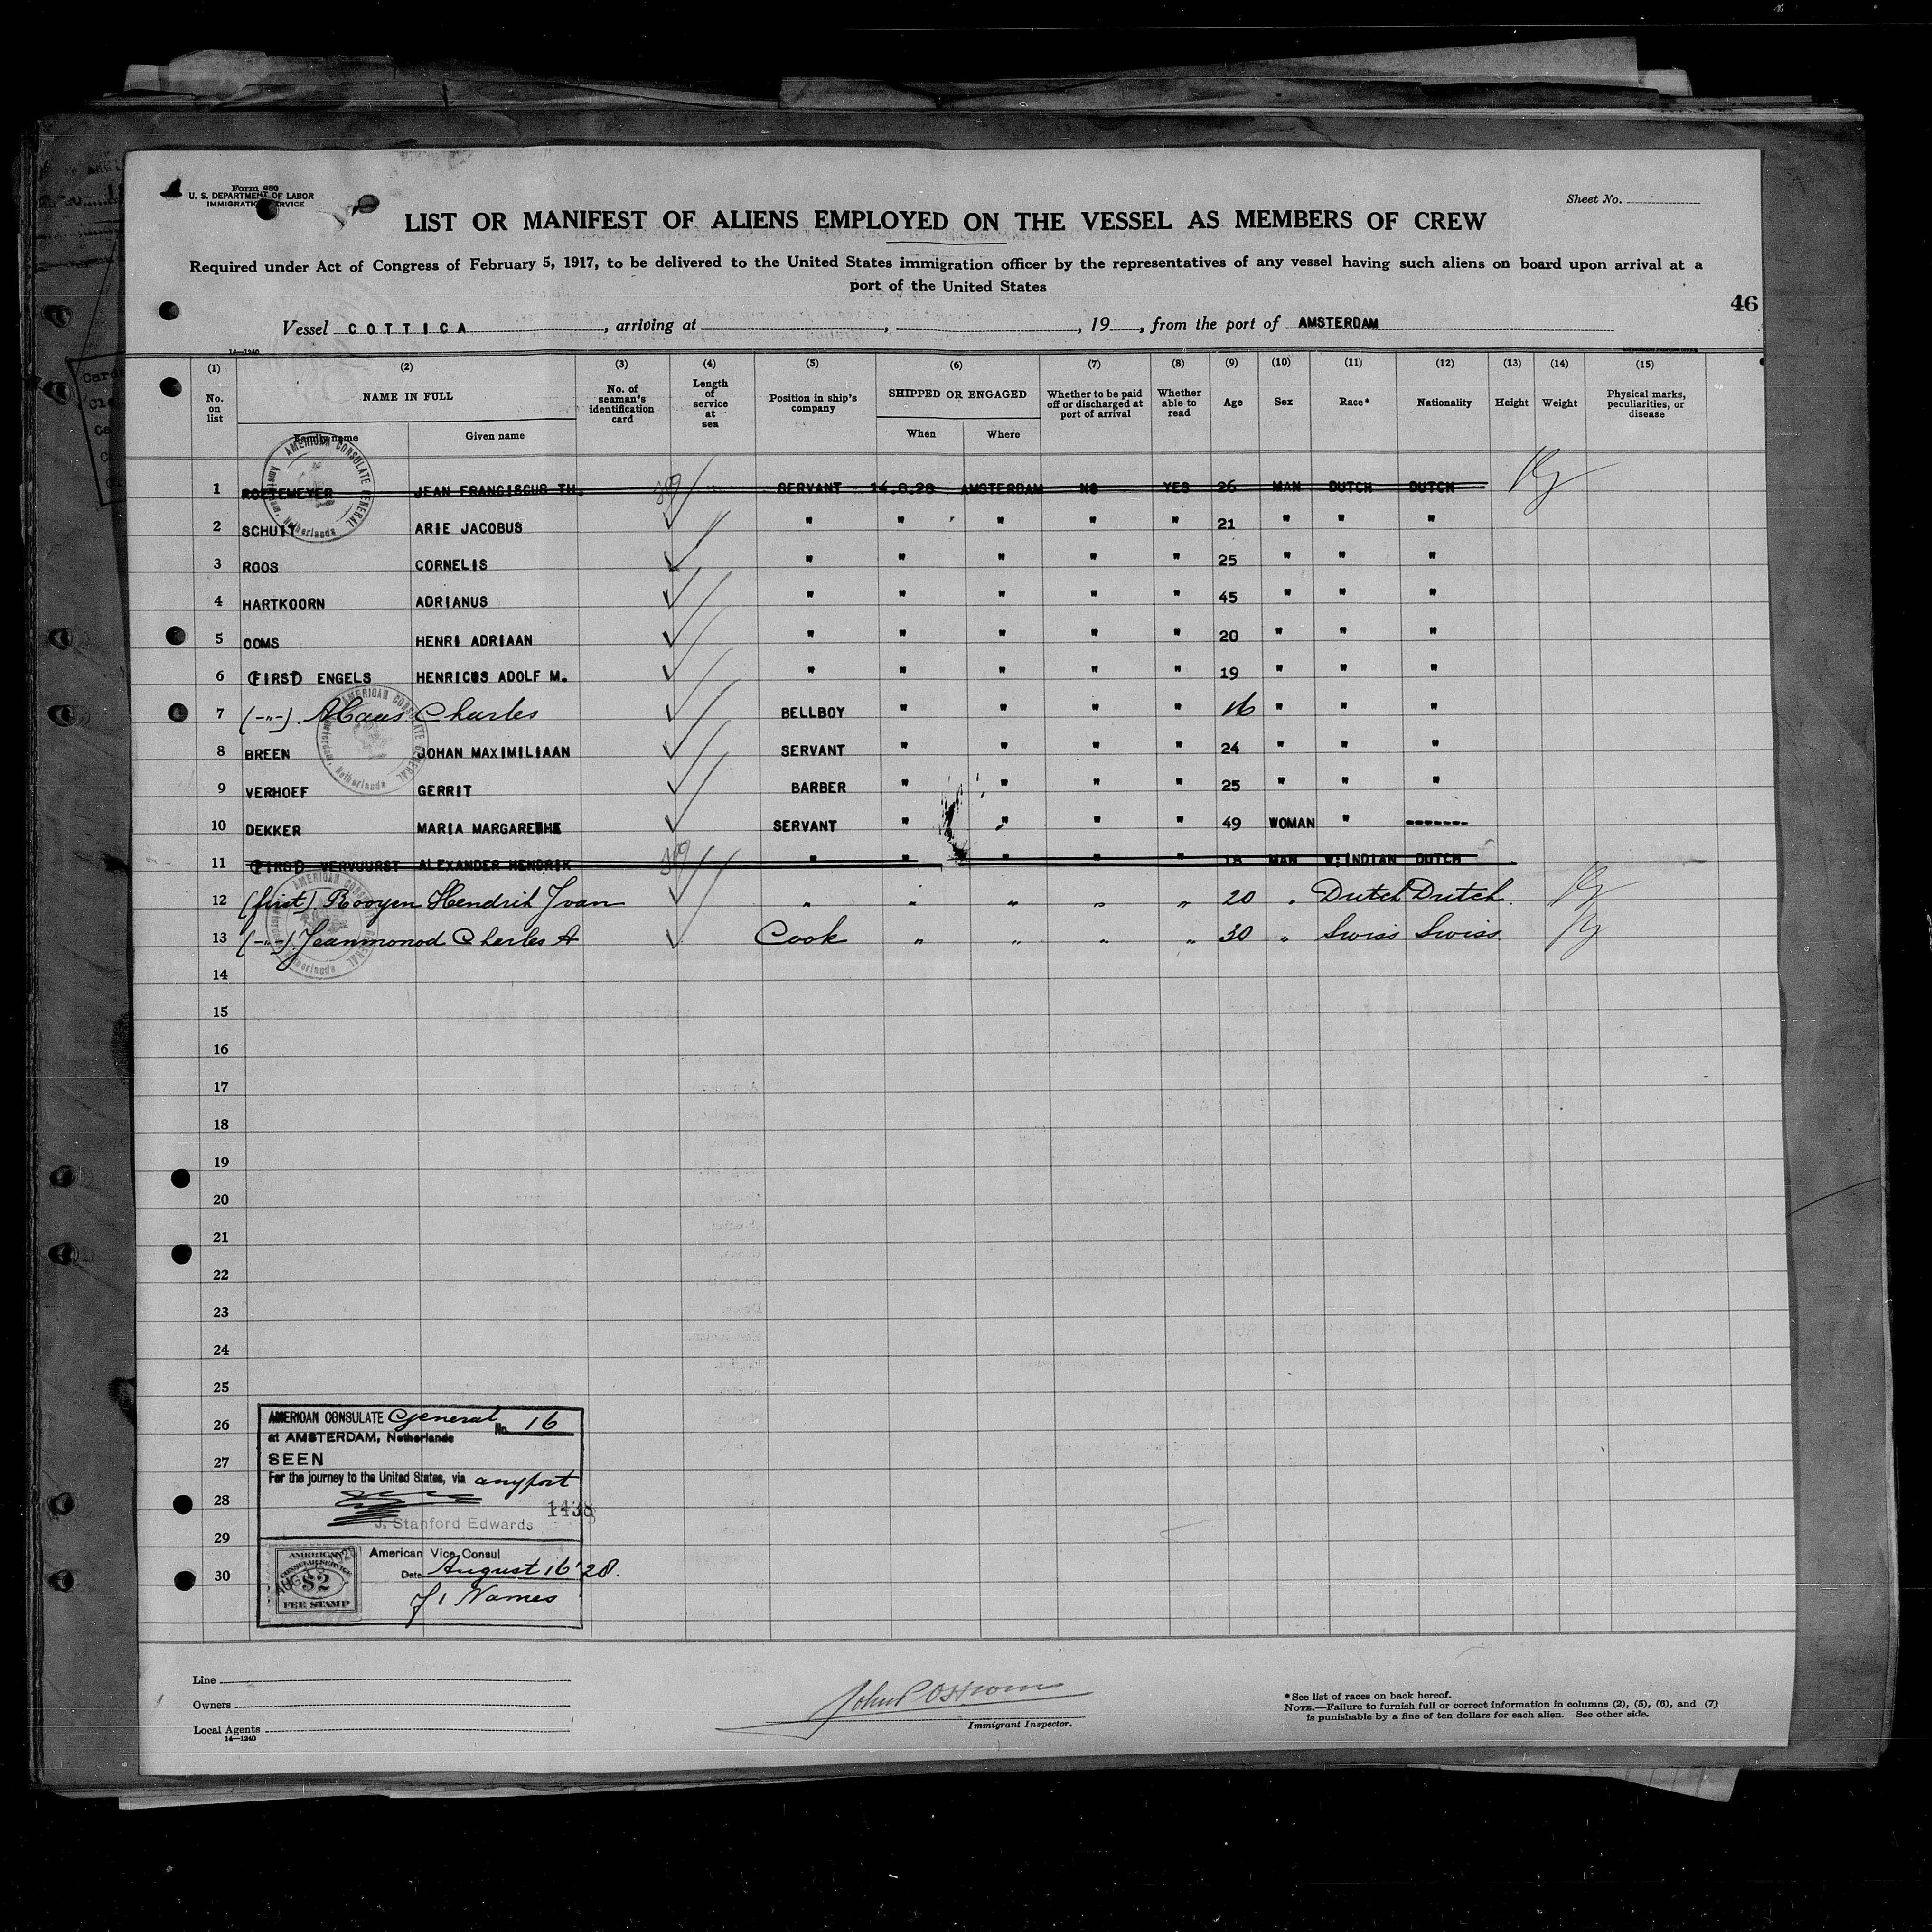 Form 680
U. S. DEPARTMENT OF LABOR
IMMIGRATION SERVICE
Sheet No.
LIST OR MANIFEST OF ALIENS EMPLOYED ON THE VESSEL AS MEMBERS OF CREW
Required under Act of Congress of February 5, 1917, to be delivered to the United States immigration officer by the representatives of any vessel having such aliens on board upon arrival at a
port of the United States
46
Vessel COTTICA, arriving at , , 19 , from the port of AMSTERDAM
14—1240
(1) (2) (3) (4) (5) (6) (7) (8) (9) (10) (11) (12) (13) (14) (15)
No. on list NAME IN FULL No. of seaman's identification card Length of service at sea Position in ship's company SHIPPED OR ENGAGED Whether to be paid off or discharged at port of arrival Whether able to read Age Sex Race* Nationality Height Weight Physical marks, peculiarities, or disease
Family name Given name When Where
1 ROTTEMEYER JEAN FRANCISCUS TH. SERVANT 14.8.28 AMSTERDAM NO YES 26 MAN DUTCH DUTCH
2 SCHUIT ARIE JACOBUS " " " " " 21 " " "
3 ROOS CORNELIS " " " " " 25 " " "
4 HARTKOORN ADRIANUS " " " " " 45 " " "
5 OOMS HENRI ADRIAAN " " " " " 20 " " "
6 (FIRST) ENGELS HENRICUS ADOLF M. " " " " " 19 " " "
7 (-"-) Charles BELLBOY " " " " 16 " " "
8 BREEN JOHAN MAXIMILIAAN SERVANT " " " " 24 " " "
9 VERHOEF GERRIT BARBER " " " " 25 " " "
10 DEKKER MARIA MARGARETHE SERVANT " " " " 49 WOMAN " -------
11 (FIRST) VERVUURST ALEXANDER HENDRIK " " " " " 18 MAN W:INDIAN DUTCH
12 (first) Rooyen Hendrik Ivan " " " " " 20 " Dutch Dutch.
13 (-"-) Jeanmonod Charles A Cook " " " " 30 " Swiss Swiss
14
15
16
17
18
19
20
21
22
23
24
25
26
27
28
29
30
AMERICAN CONSULATE General No. 16
at AMSTERDAM, Netherlands
SEEN
For the journey to the United States, via any port
1438
J. Stanford Edwards
American Vice Consul
Date August 16 '28.
Names
AMERICAN
CONSULAR SERVICE
$2
FEE STAMP
AMERICAN CONSULATE GENERAL
Amsterdam, Netherlands
Line
Owners
Local Agents
14—1240
Immigrant Inspector.
*See list of races on back hereof.
NOTE.—Failure to furnish full or correct information in columns (2), (5), (6), and (7)
is punishable by a fine of ten dollars for each alien. See other side.